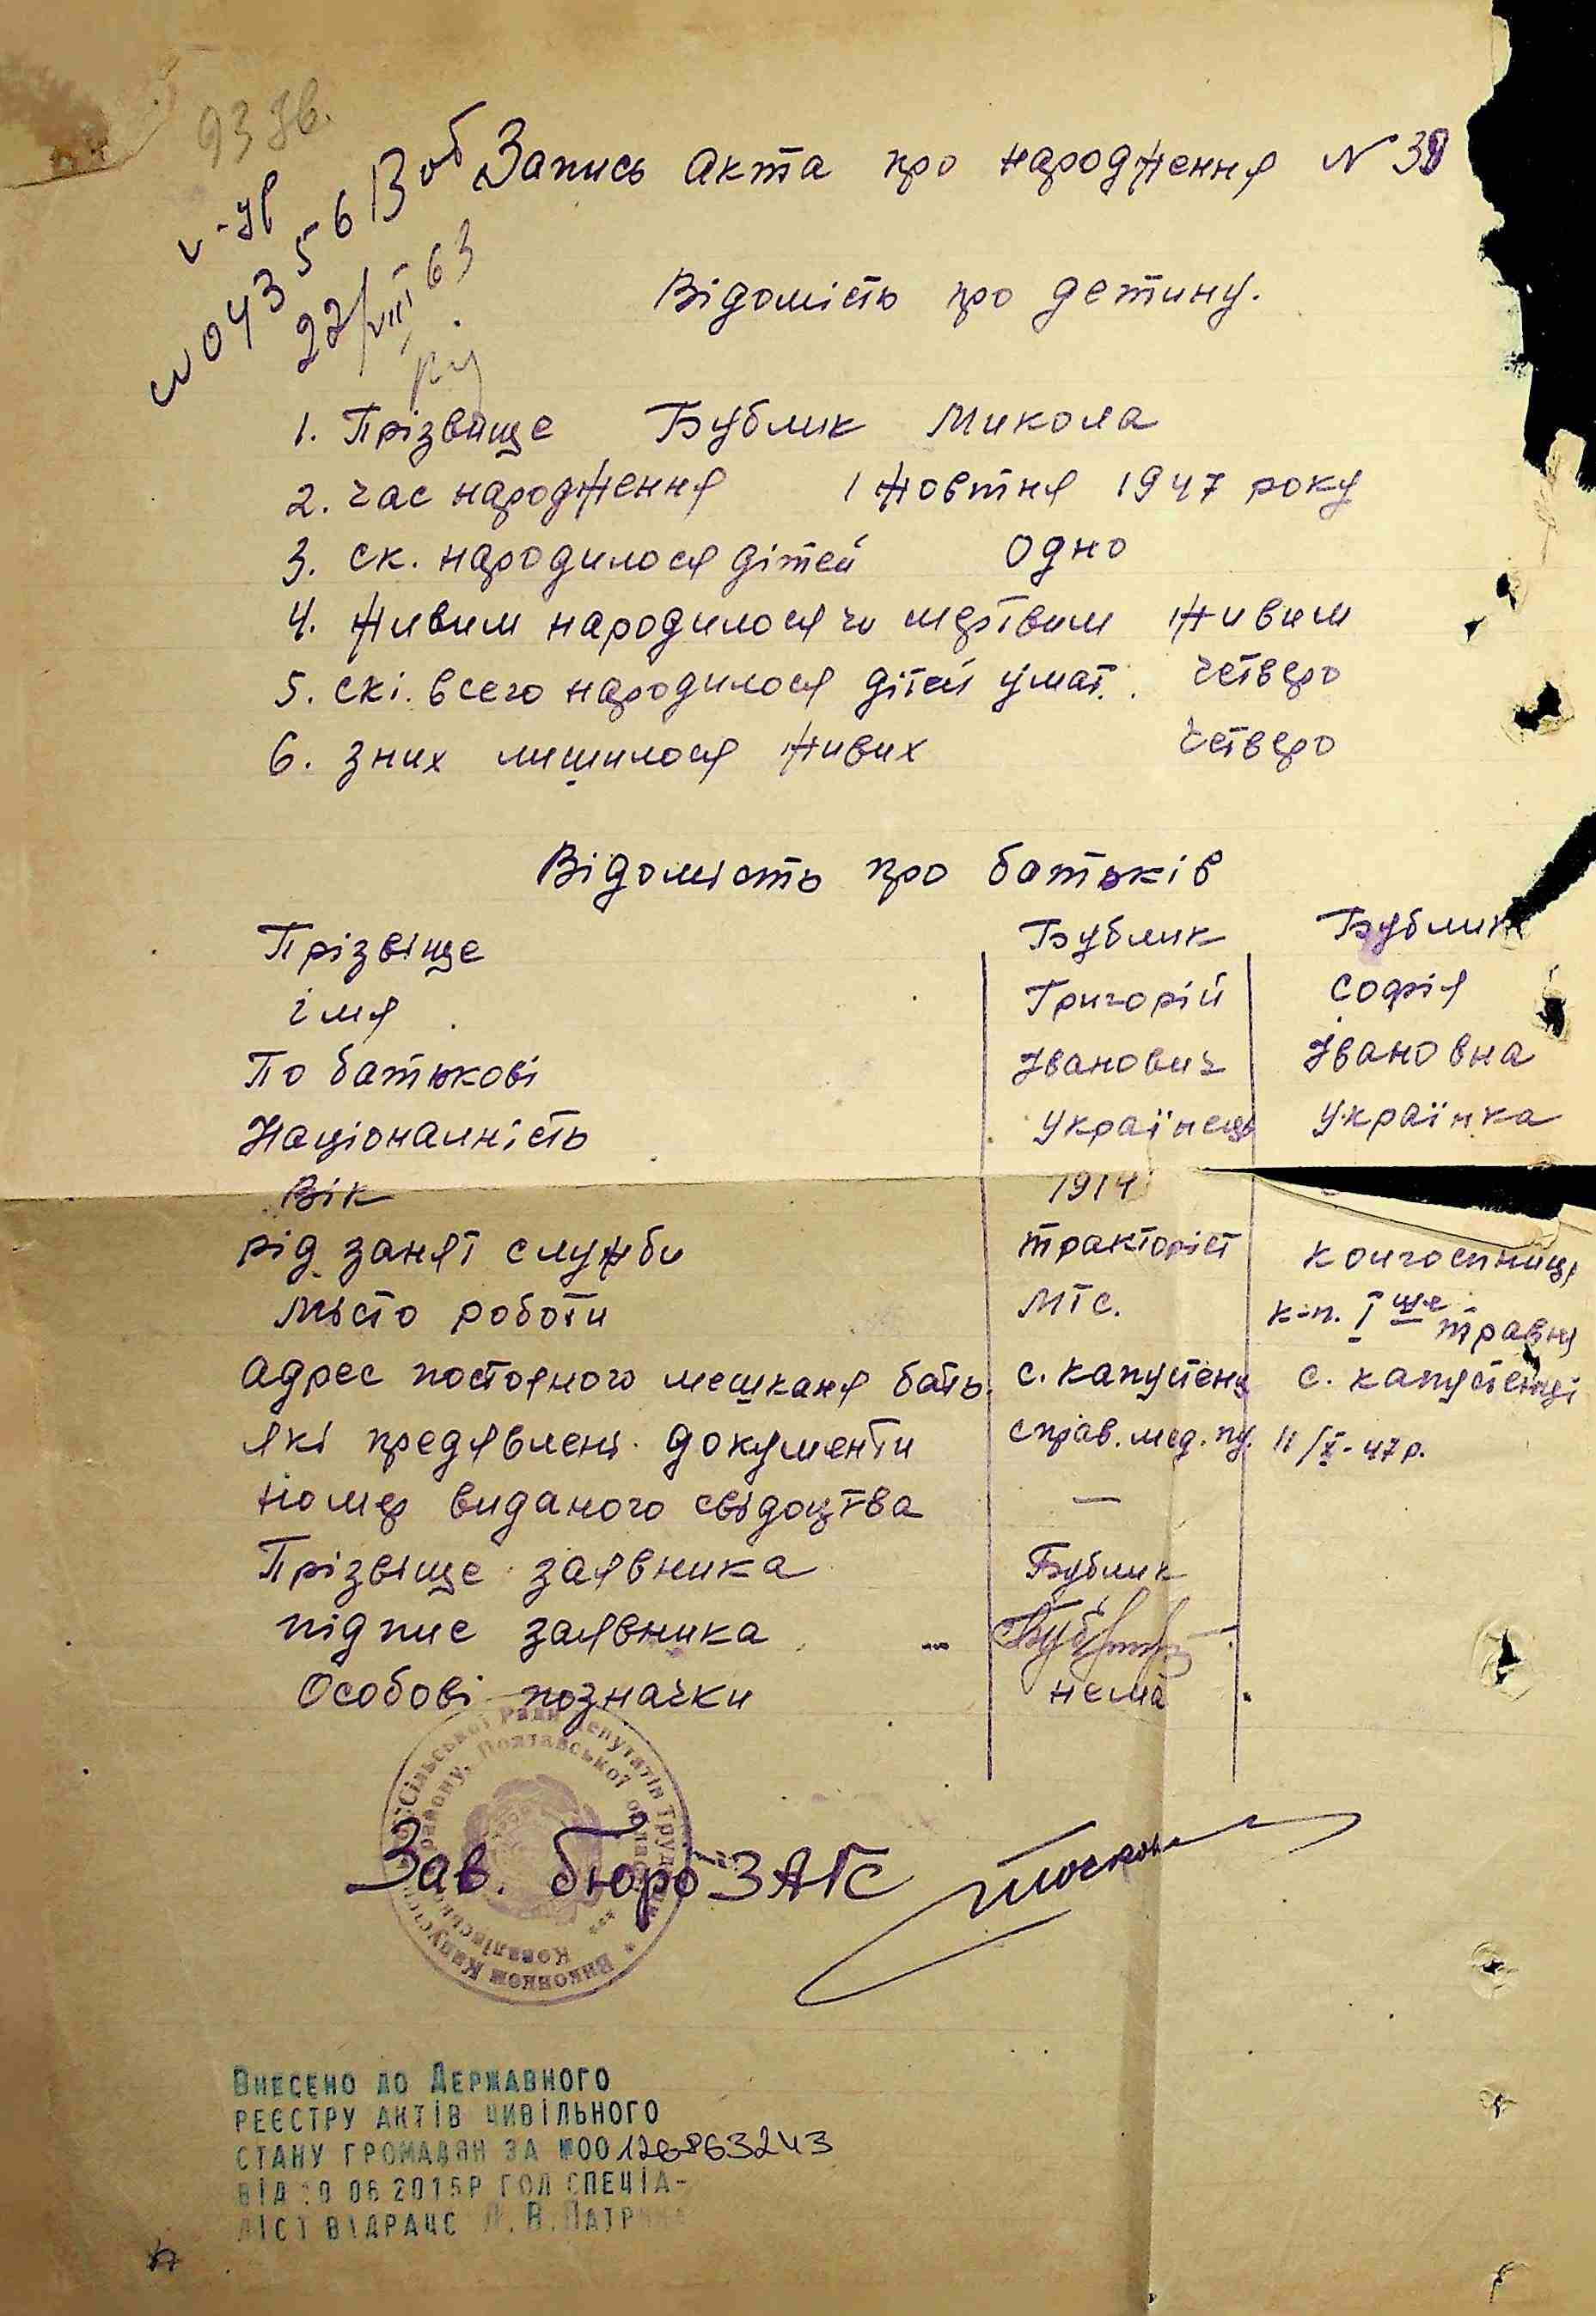 93 зв.
Запись акта про народження N 38
043561
22/VIII 63
Відомість про детину.
1. Прізвище Бублик Микола
2. час народження 1 жовтня 1947 року
3. ск. народилося дітей одно
4. живим народилося чи мертвим живим
5. скі. всего народилося дітей у мат. четверо
6. з них лишилося живих четверо
Відомість про батьків
Прізвіще Бублик Бублик
імя Григорій Софія
По батькові Іванович Івановна
Націоналність Українець Українка
Вік 1914
рід занят служби тракторіст колгоспниця
місто роботи МТС. к-п. І ше травня
адрес постояного мешканя бать. с. капустенц с. капустенці
які предявлені документи справ. мед. пу. 11/X-47 р.
номер виданого свідоцтва —
Прізвіще заявника Бублик
підпис заявника
Особові позначки нема
Зав. бюро ЗАГС
Сільської Ради депутатів трудящих
району, Полтавської області
Ковалівського
Виконком Капустинської
Внесено до Державного
реєстру актів цивільного
стану громадян за №00126863243
від 06 2015р гол спеціа-
ліст відрацс